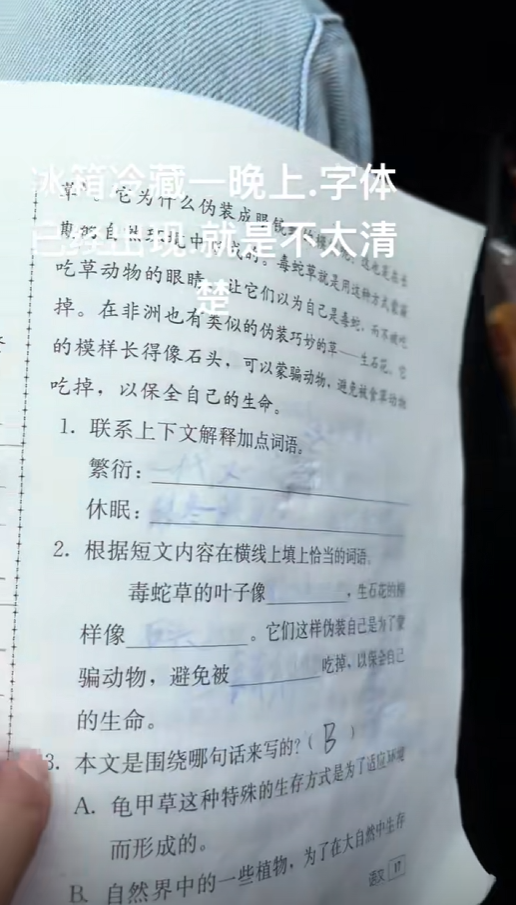 冰箱冷藏一晚上.字体
已经出现.就是不太清
楚
草"。它为什么伪装成眼镜
期的自然环境中形成的。毒蛇草就是用这种方式蒙骗
吃草动物的眼睛，让它们以为自己是毒蛇，而不被吃
掉。在非洲也有类似的伪装巧妙的草——生石花。它
的模样长得像石头，可以蒙骗动物，避免被食草动物
吃掉，以保全自己的生命。
1. 联系上下文解释加点词语。
繁衍：一代又
休眠：
2. 根据短文内容在横线上填上恰当的词语。
毒蛇草的叶子像，生石花的模
样像石头。它们这样伪装自己是为了蒙
骗动物，避免被吃掉，以保全自己
的生命。
3. 本文是围绕哪句话来写的?（B）
A. 龟甲草这种特殊的生存方式是为了适应环境
而形成的。
B. 自然界中的一些植物，为了在大自然中生存
语文 17